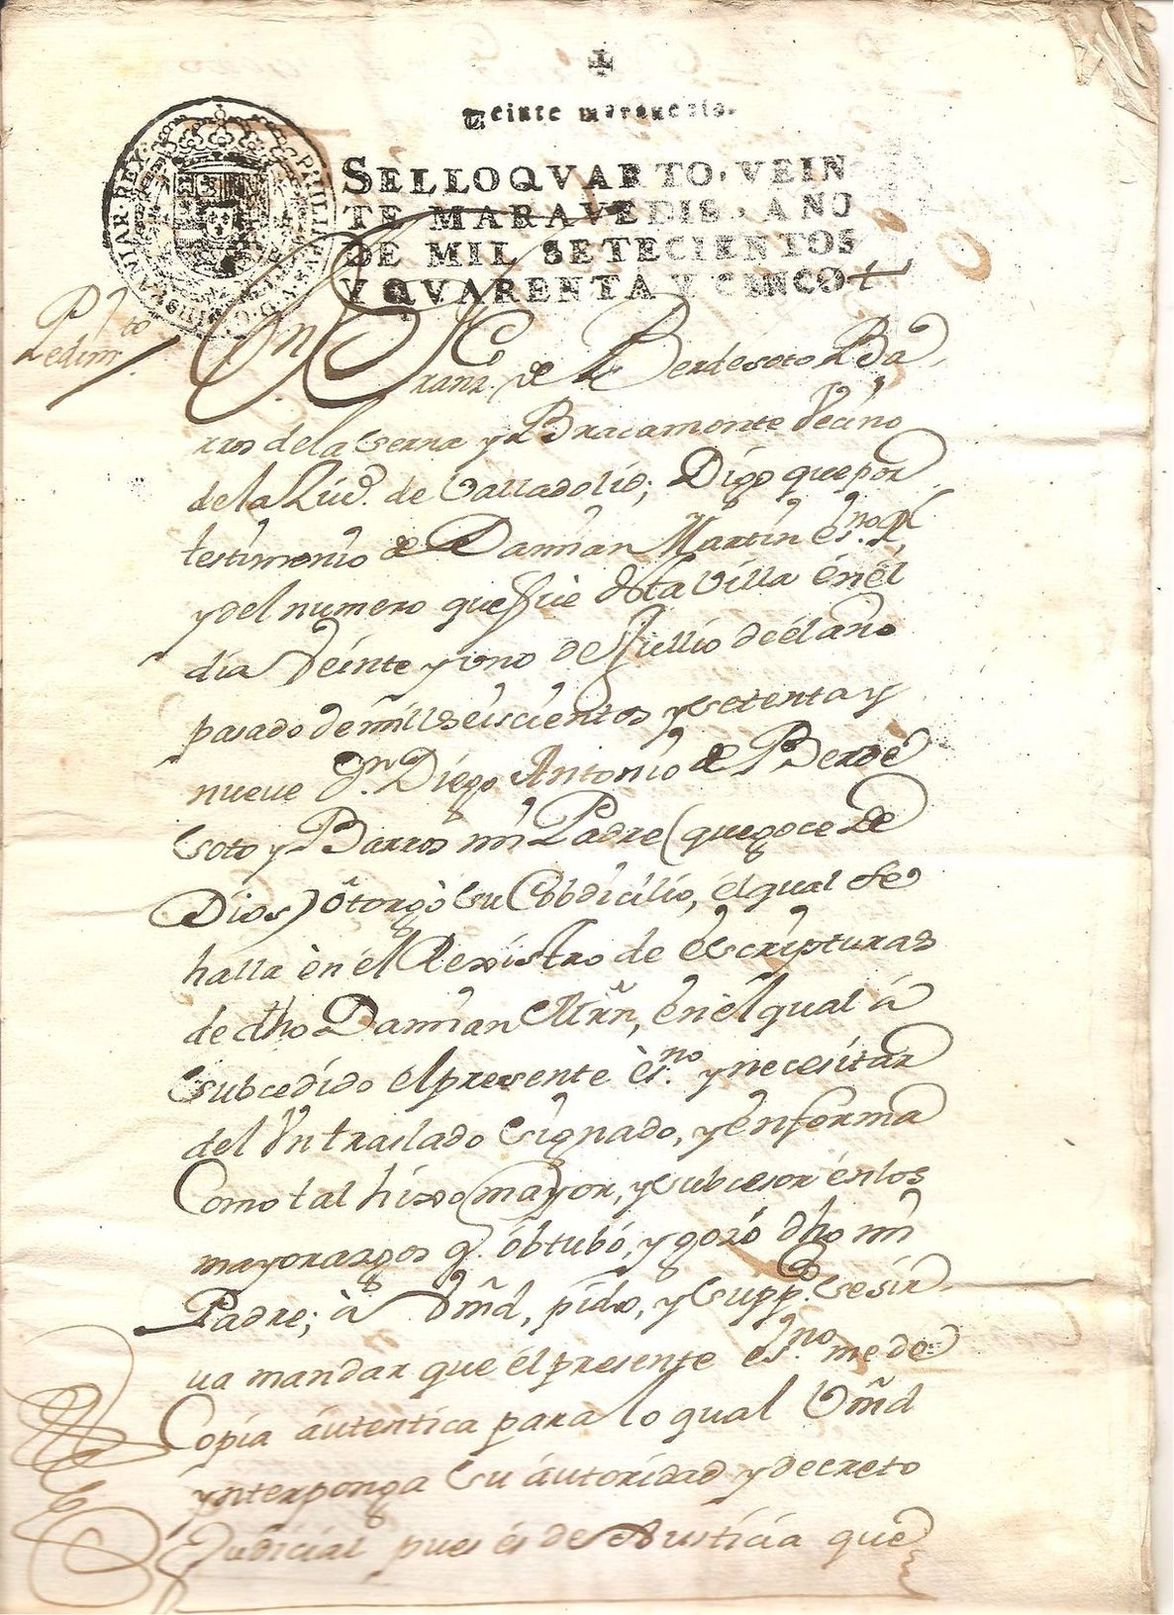 Veinte maravedis.
SELLO QVARTO, VEIN
TE MARAVEDIS, AÑO
DE MIL SETECIENTOS
Y QVARENTA Y CINCO
PHILIPPUS V D G HISPANIAR REX
Pedim.to
Dn Franz.co de Berdesoto Ba
rros de la Serna y Bracamonte Vecino
de la Ziud. de Valladolid; Digo que por
testimonio de Damian Martin es.no R.l
y del numero que fuè desta Villa en él
dia Veinte y uno de Jullio de él año
pasado de mill seiscientos y setenta y
nueve D.n Diego Antonio de Berde
soto y Barros mi Padre (que goce de
Dios) ôtorgò su Cobdicilio, él qual se
halla èn él Rexistro de escripturas
de dho Damian Mrñ, en él qual á
subcedido el presente ès.no y necesitar
del Vn traslado signado, y en forma
Como tal hixo mayor, y subcesor én los
mayorazgos q. óbtubó, y gozó dho mi
Padre; à Vm̃d, pido, y supp.co se sir
va mandar que él presente es.no me de
Copia áutentica para lo qual Vm̃d
ynterponga su áutoridad y decreto
Judicial pues és de Justicia que